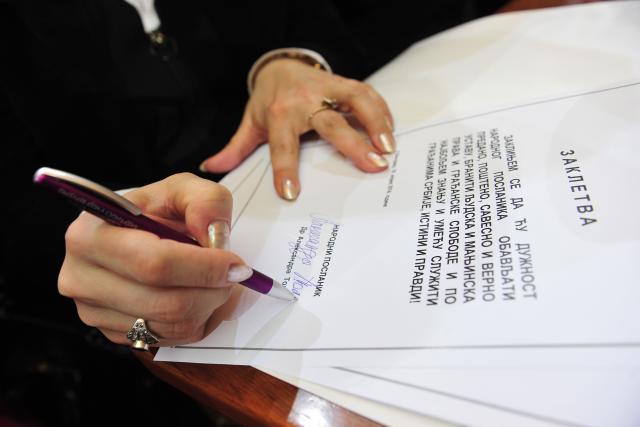 ЗАКЛЕТВА
ЗАКЛИЊЕМ СЕ ДА ЋУ ДУЖНОСТ
НАРОДНОГ ПОСЛАНИКА ОБАВЉАТИ
ПРЕДАНО, ПОШТЕНО, САВЕСНО И ВЕРНО
УСТАВУ, БРАНИТИ ЉУДСКА И МАЊИНСКА
ПРАВА И ГРАЂАНСКЕ СЛОБОДЕ И ПО
НАЈБОЉЕМ ЗНАЊУ И УМЕЋУ СЛУЖИТИ
ГРАЂАНИМА СРБИЈЕ, ИСТИНИ И ПРАВДИ!
НАРОДНИ ПОСЛАНИК
др Александра То